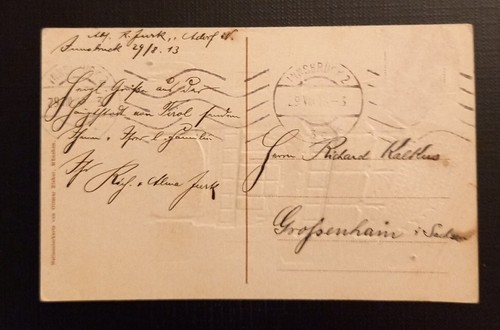 Abs. R. Jurk, Adorf V.
Innsbruck 29/8. 13
Herzl. Grüße aus der
Hauptstadt von Tirol senden
Ihnen u. Ihrer l. Familie
Ihr
Rich. u. Alma Jurk
INNSBRUCK 2
Herrn Richard Kalkus
Großenhain i. Sachsen